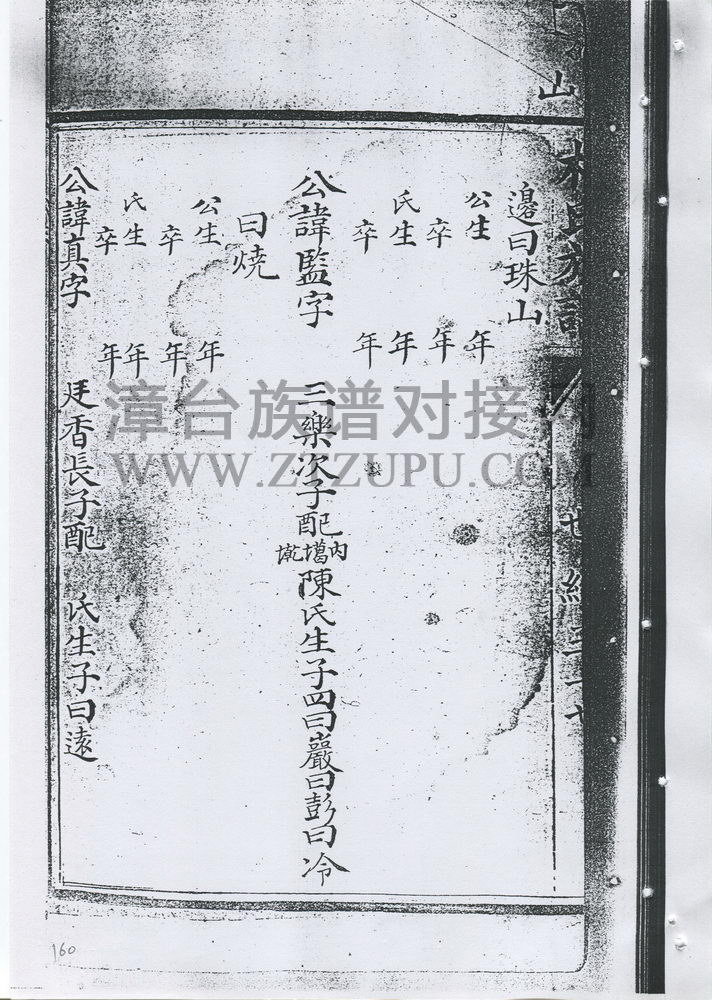 山
林氏族譜
邊曰珠山
公生 年
卒 年
氏生 年
卒 年
公諱監字 三樂次子配内墈陳氏生子四曰巖曰彭曰冷
曰燒
公生 年
卒 年
氏生 年
卒 年
公諱真字 廷香長子配 氏生子曰遠
漳台族谱对接网
WWW.ZTZUPU.COM
160